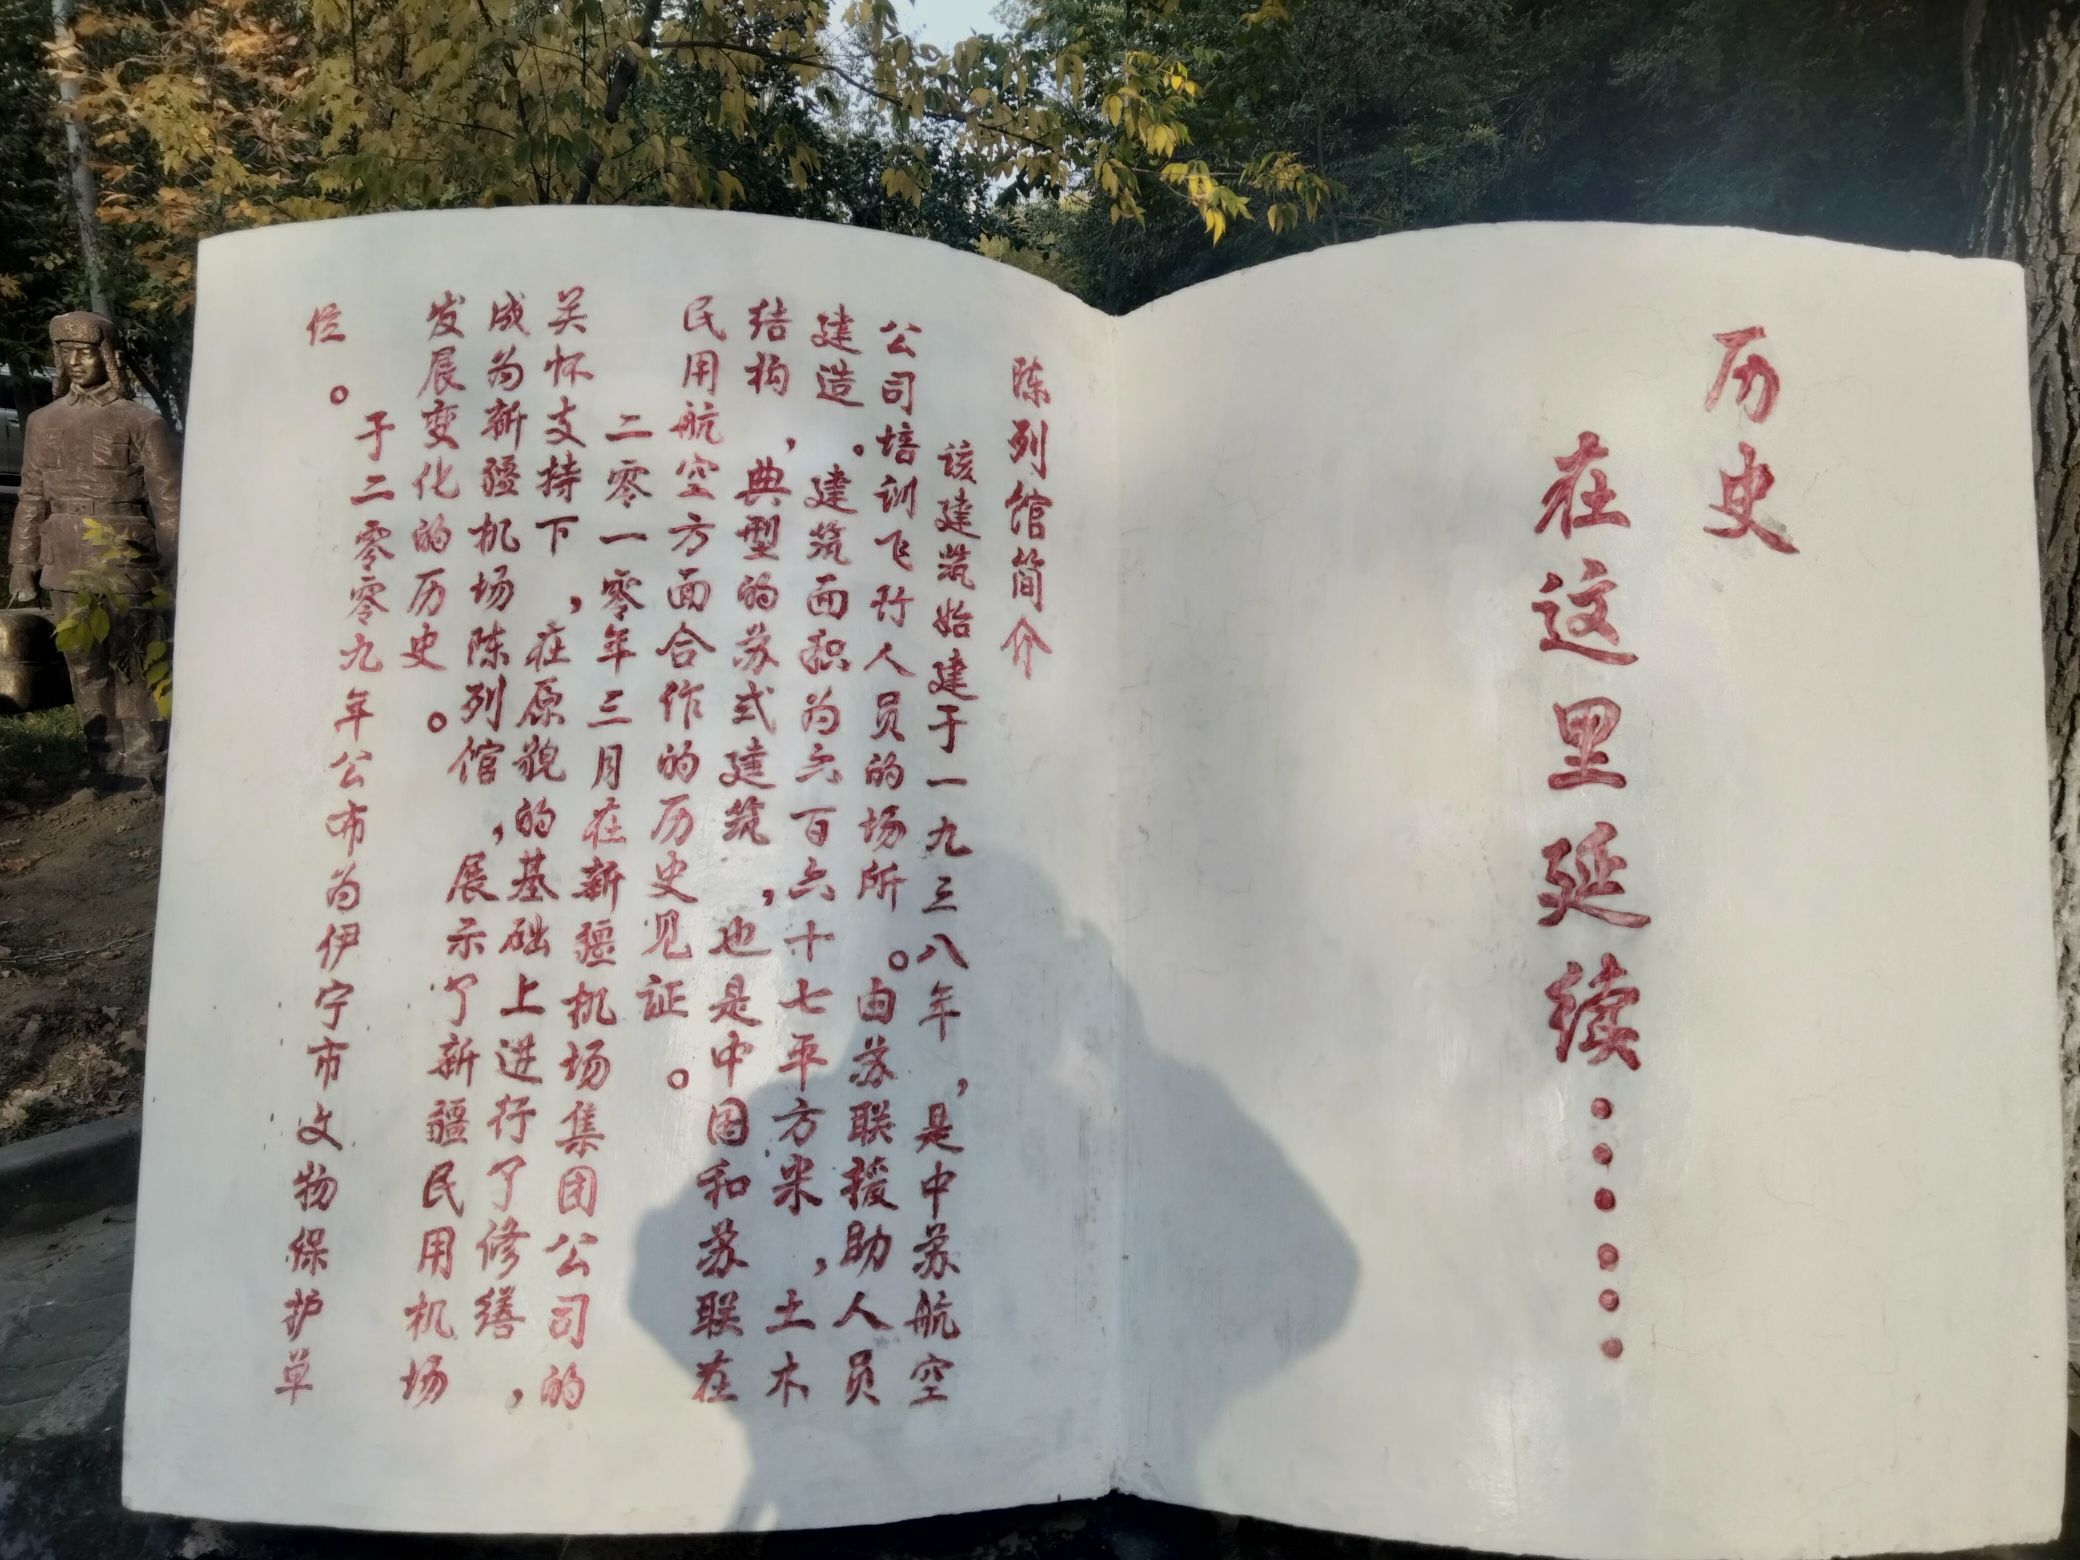 历史
在这里延续……
陈列馆简介
该建筑始建于一九三八年，是中苏航空
公司培训飞行人员的场所。由苏联援助人员
建造。建筑面积为六百六十七平方米，土木
结构，典型的苏式建筑，也是中国和苏联在
民用航空方面合作的历史见证。
二零一零年三月在新疆机场集团公司的
关怀支持下，在原貌的基础上进行了修缮，
成为新疆机场陈列馆，展示了新疆民用机场
发展变化的历史。
于二零零九年公布为伊宁市文物保护单
位。